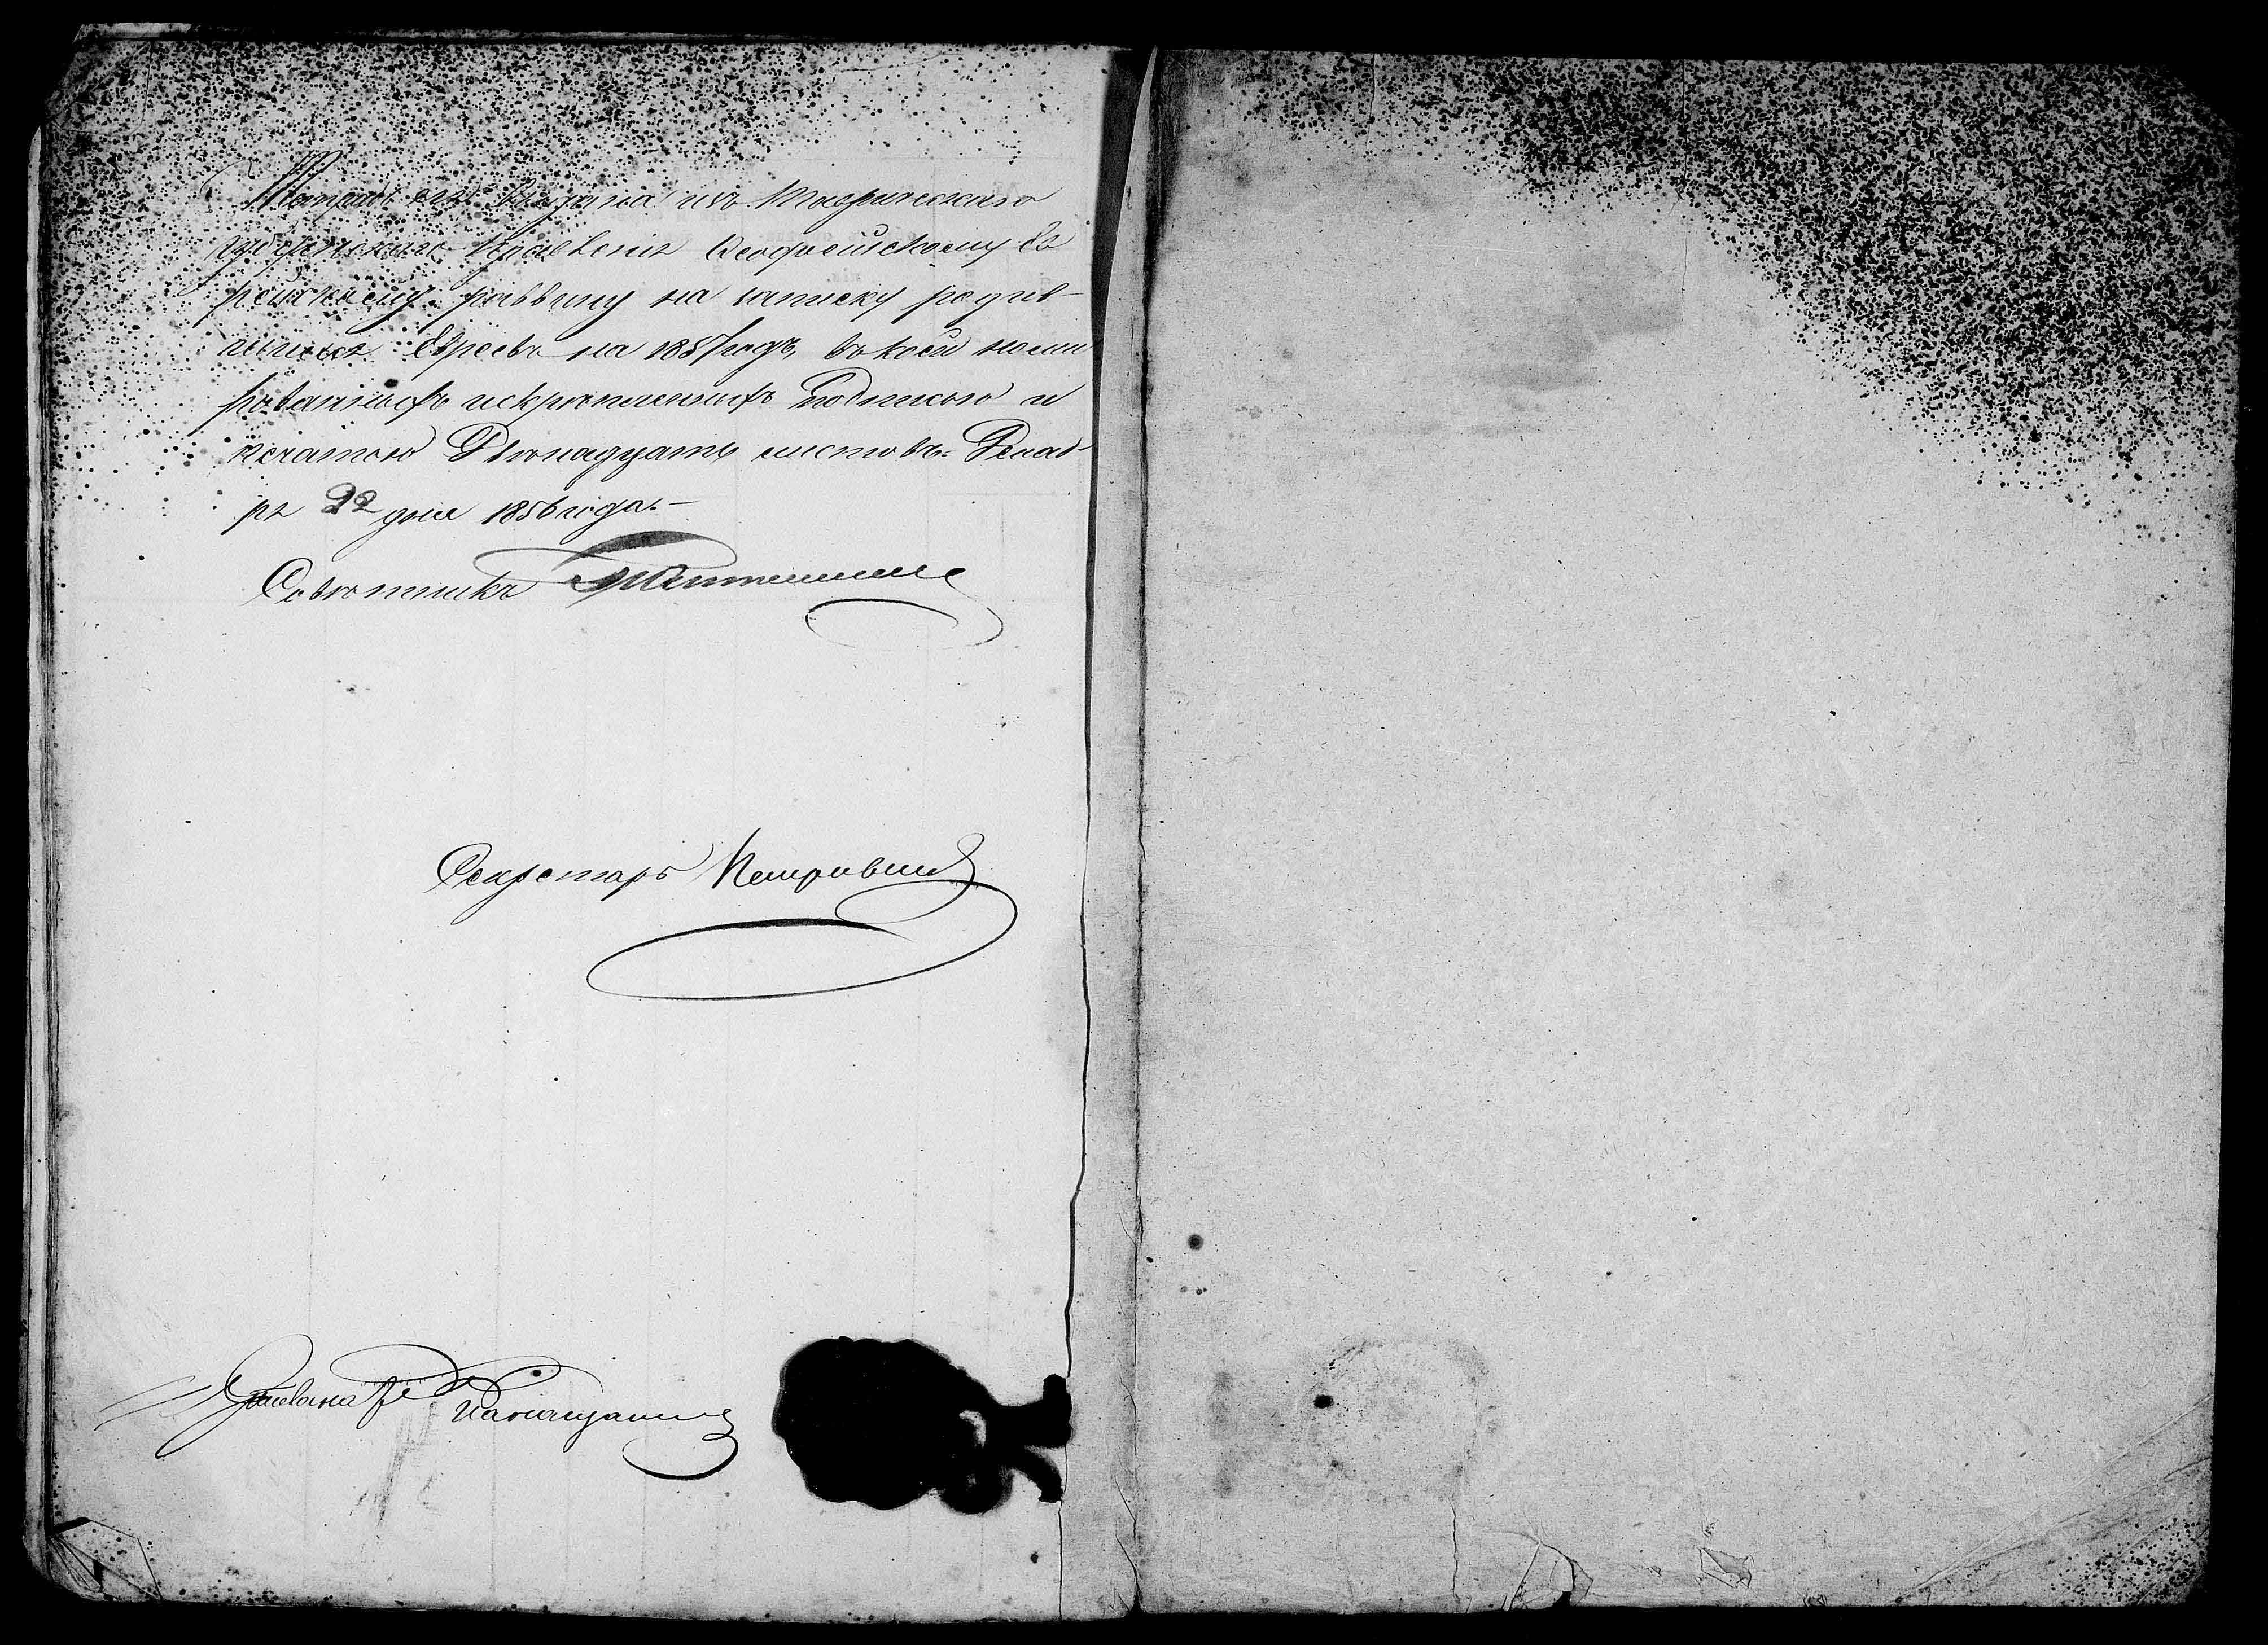 Тетрадь сія выдана изъ Таврическаго
губернскаго Правленія Ѳеодосійскому Ев
рейскому раввину на записку родив-
шихся Евреевъ на 1857 годъ, въ коей номи
рованныхъ искрепленныхъ подписью и
печатью Двенадцать листовъ. Декаб-
ря 22 дня 1856 года.
Советникъ
Секретарь